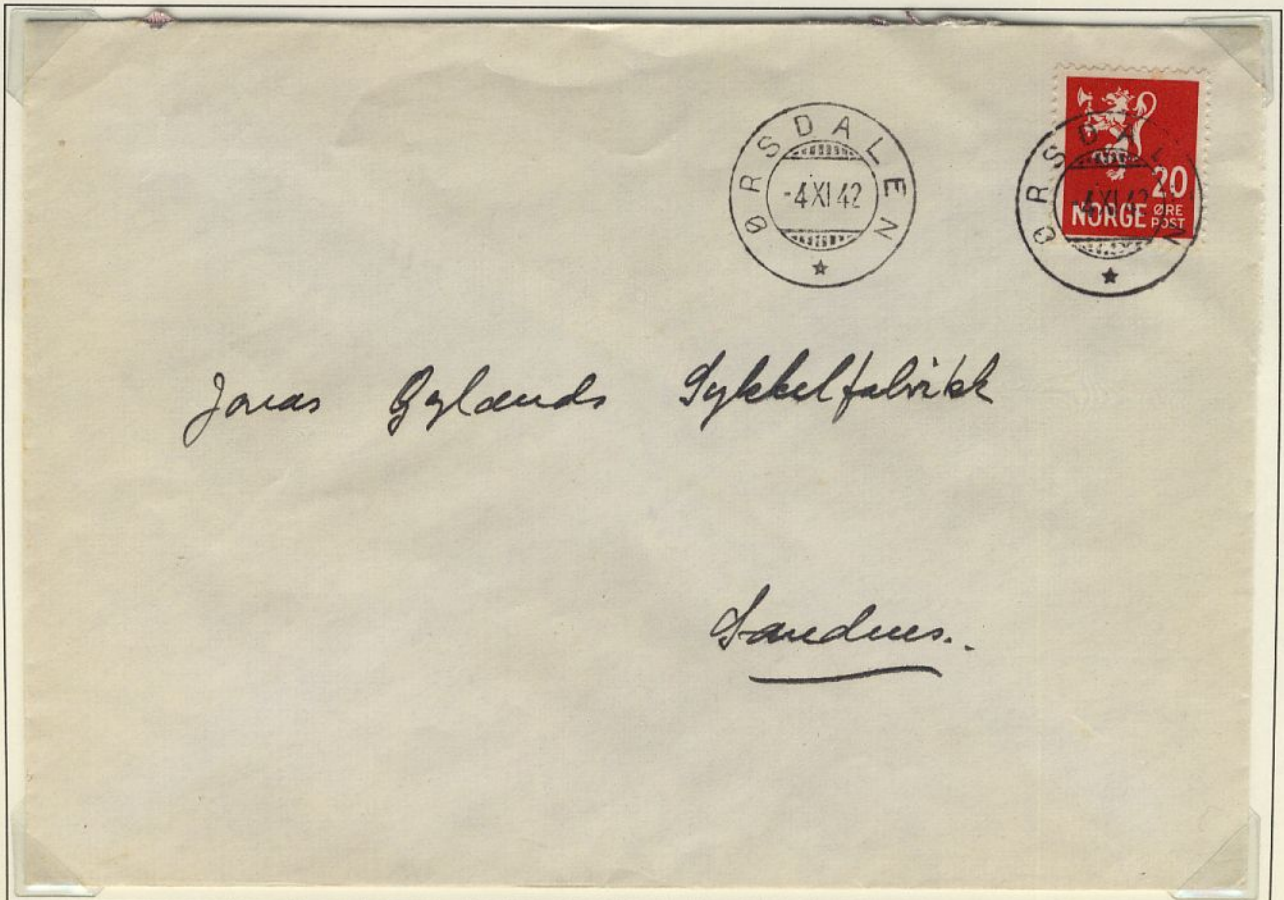 ØRSDALEN
-4 XI 42
ØRSDALEN
-4 XI 42
20
NORGE ØRE
POST
Jonas Øglænds Sykkelfabrikk
Sandnes..